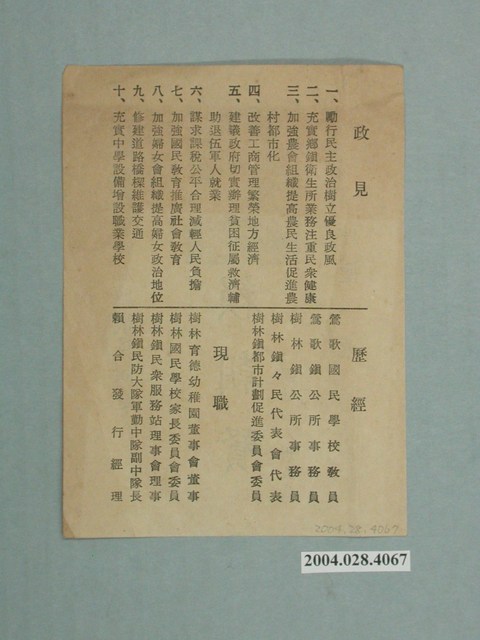 政見
一、勵行民主政治樹立優良政風
二、充實鄉鎮衛生所業務注重民衆健康
三、加強農會組織提高農民生活促進農
村都市化
四、改善工商管理繁榮地方經濟
五、建議政府切實辦理貧困征屬救濟輔
助退伍軍人就業
六、謀求課稅公平合理減輕人民負擔
七、加強國民教育推廣社會教育
八、加強婦女會組織提高婦女政治地位
九、修建道路橋樑維護交通
十、充實中學設備增設職業學校
歷經
鶯歌國民學校教員
鶯歌鎮公所事務員
樹林鎮公所事務員
樹林鎮々民代表會代表
樹林鎮都市計劃促進委員會委員
現職
樹林育德幼稚園董事會董事
樹林國民學校家長委員會委員
樹林鎮民衆服務站理事會理事
樹林鎮民防大隊軍勤中隊副中隊長
賴合發行經理
2004.28.4067
2004.028.4067